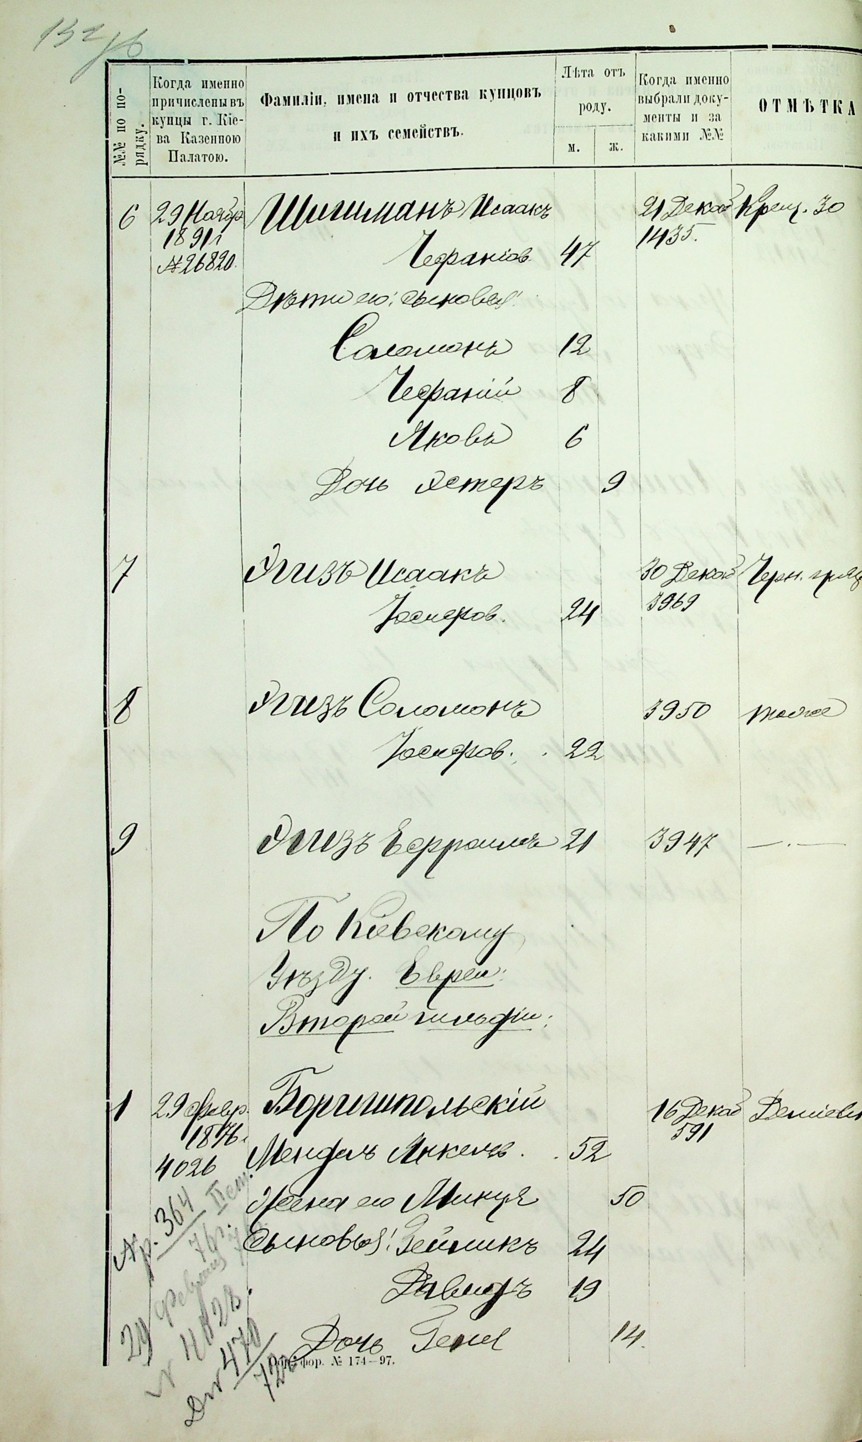 №№ по порядку.
Когда именно причислены въ купцы г. Кіева Казенною Палатою.
Фамиліи, имена и отчества купцовъ и ихъ семействъ.
Лѣта отъ роду.
м.
ж.
Когда именно выбрали документы и за какими №№
ОТМѢТКА
6 29 Ноябр Шишманъ Исаакъ 21 Декаб Крещ. 30
1891 г 1435.
№ 26820. Чефаніов 47
Дѣти его: сыновья:
Соломонъ 12
Чефаній 8
Яковъ 6
Дочь Эстеръ 9
7 Эгизъ Исаакъ 30 Декаб Черн. гряз
Іосифов. 24 3969
8 Эгизъ Соломонъ 3950 тоже
Іосифов. 22
9 Эгизъ Ефраимъ 21 3947 —.—
По Кіевскому
Уѣзду. Евреи:
Второй гильдіи:
1 29 февр. Боришпольскій 16 Декаб Деміевк
1876. 591
4026 Мендель Янкелев. 52
Жена его Минця 50
Сыновья: Гейликъ 24
Давидъ 19
Дочь Геня 14.
Пр. 364
76 г.
29 Февраля
№ 4028.
Д № 470
фор. № 174—97.